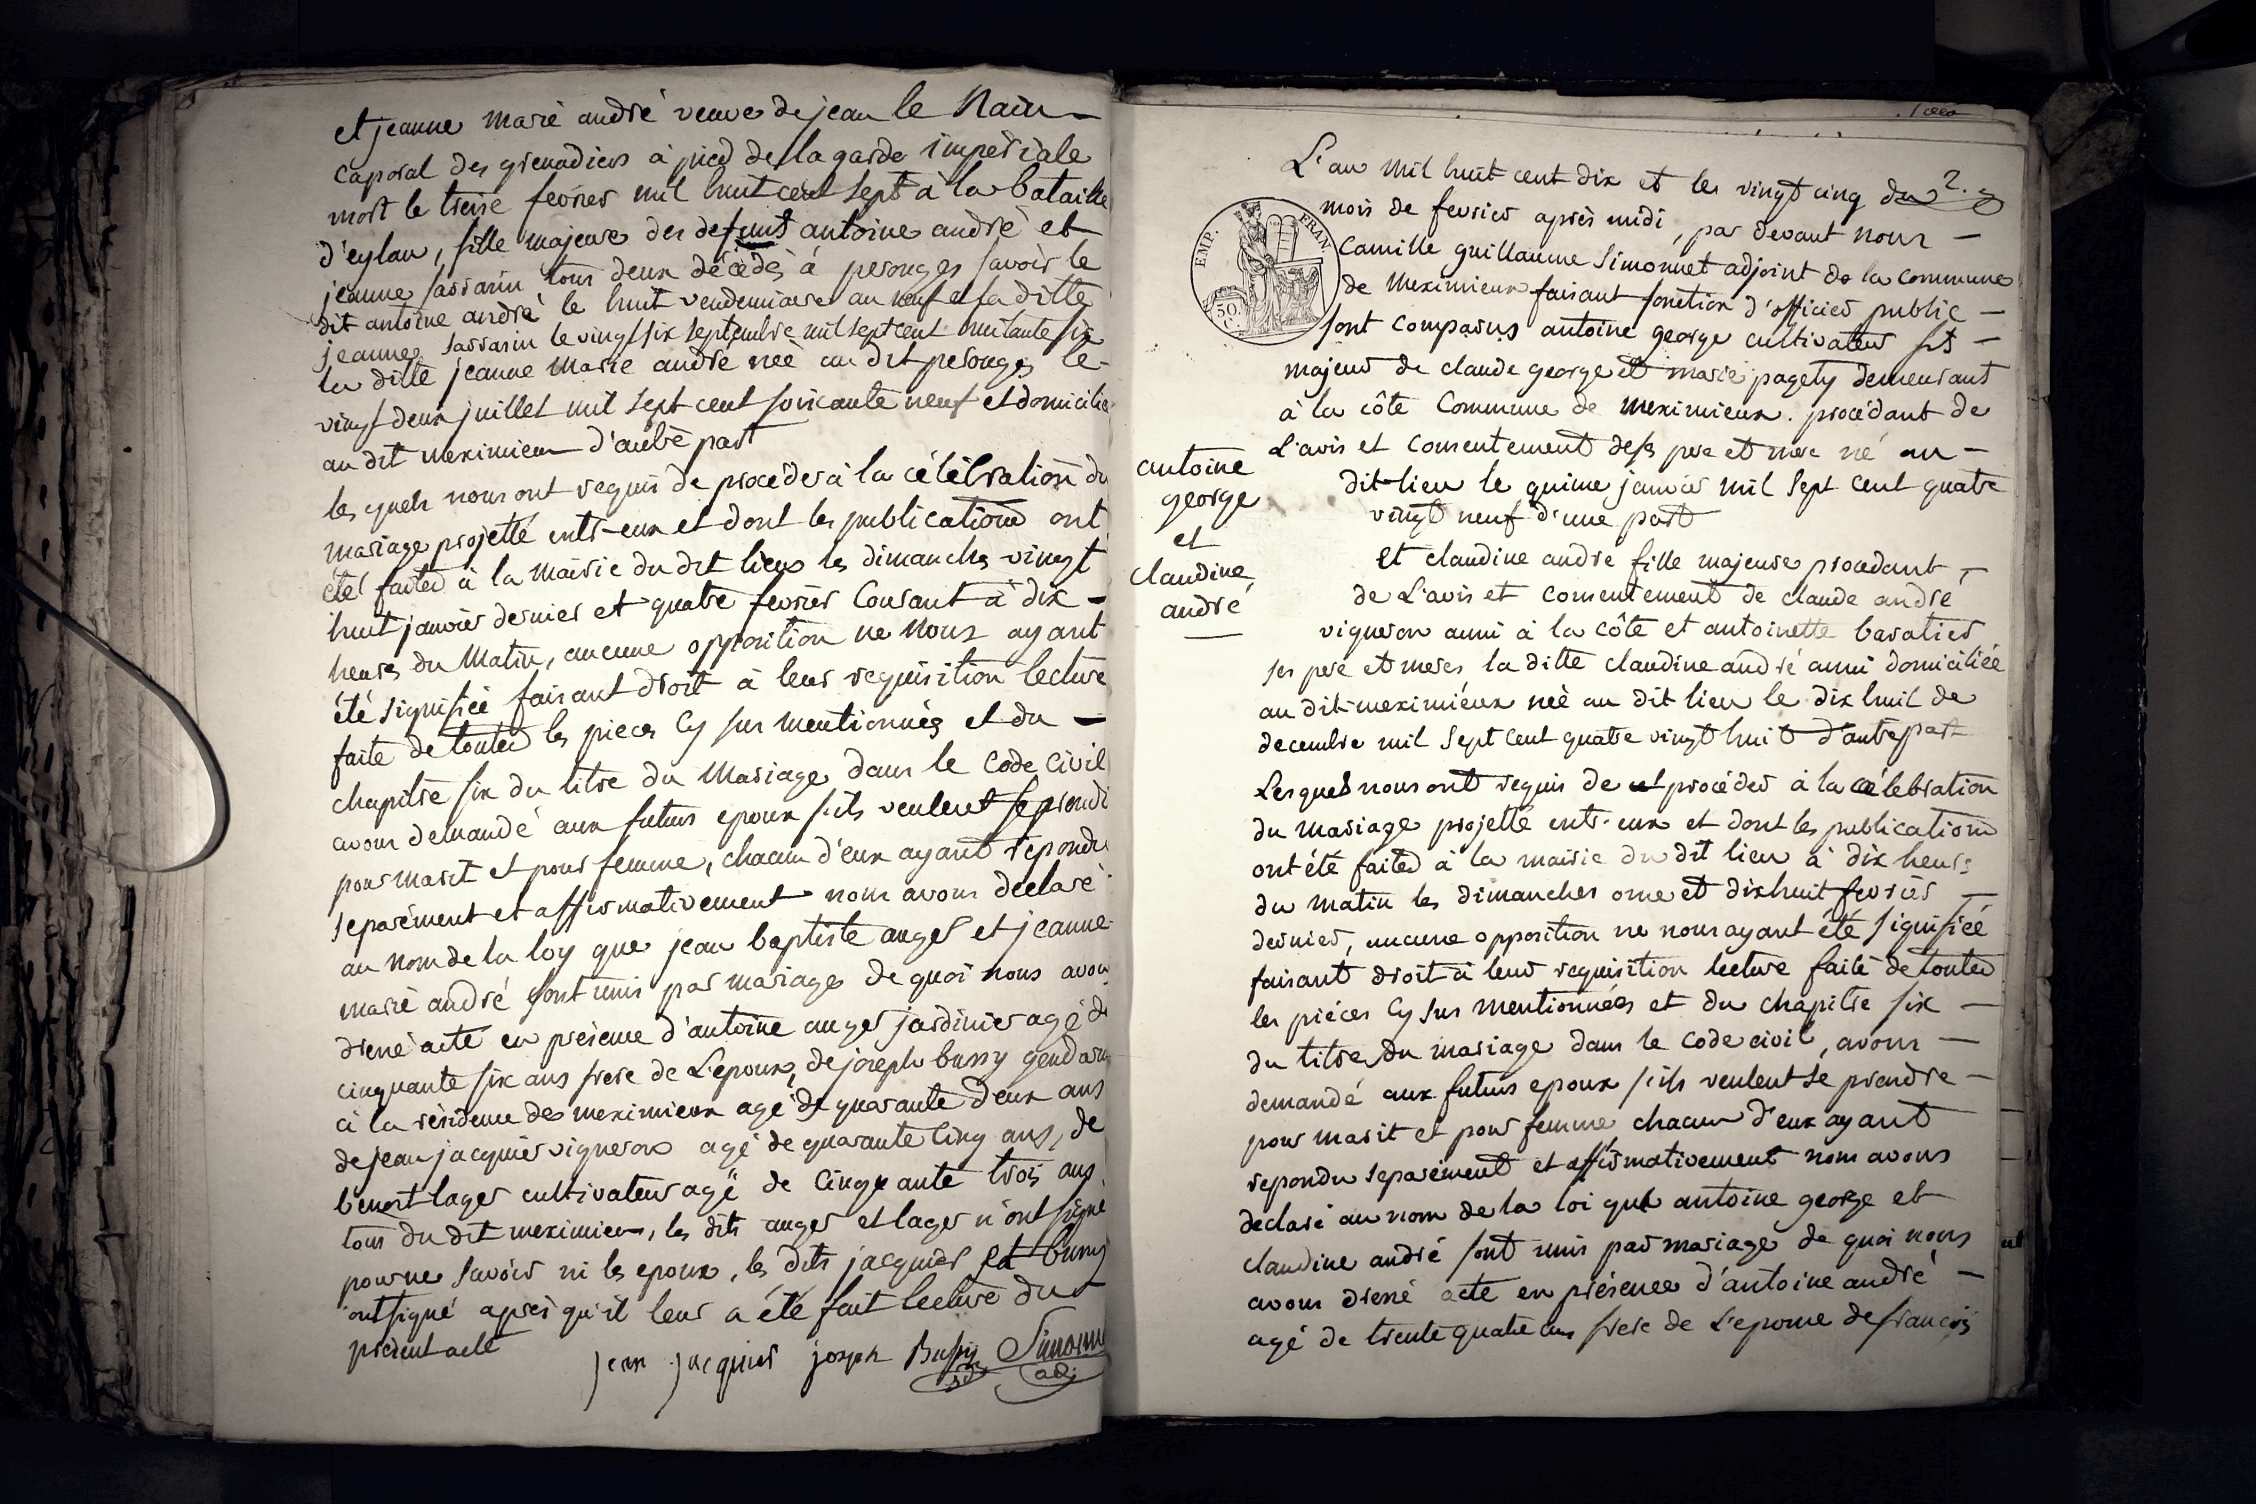 et jeanne marie andré veuve de jean le Nain
caporal des grenadiers à pied de la garde impériale
mort le treise fevrier mil huit cent sept à la bataille
d'eylau, fille majeure des defunts antoine andré et
jeanne sarrasin tous deux décédés à perouges savoir le
dit antoine andré le huit vendemiaire an neuf et la ditte
jeanne sarrasin le vingt six septembre mil sept cent huitante six
la ditte jeanne marie andré neé au dit perouges le
vingt deux juillet mil sept cent soixante neuf et domicilié
au dit meximieux d'autre part
les quels nous ont requis de procéder à la célébration du
mariage projetté entr-eux et dont les publications ont
été faites à la mairie du dit lieu les dimanches vingt
huit janvier dernier et quatre fevrier Courant à dix
heures du matin, aucune opposition ne nous ayant
été signifiée faisant droit à leur requisition lecture
faite de toutes les pieces Cy sus mentionnées et du
chapitre six du titre du Mariage dans le Code Civil
avons demandé aux futurs epoux s'ils veulent se prendr
pour marit et pour femme, chacun d'eux ayant répondu
separément et affirmativement nous avons déclaré
au nom de la loy que jean baptiste auger et jeanne
marie andré sont unis par mariage de quoi nous avons
dressé acte en présence d'antoine auger jardinier agé de
cinquante six ans frere de L'epoux, de joseph bussy gendarme
à la résidence de meximieux agé de quarante deux ans
de jean jacquier vigneron agé de quarante cinq ans, de
benoit lager cultivateur agé de cinquante trois ans
tous du dit meximieux, les dits auger et lager n'ont signé
pour ne savoir ni les epoux, les dits jacquier et bussy
ont signé après qu'il leur a été fait lecture du
présent acte
jean jacquier joseph Bussy Simonnet
adj
1000
L'an mil huit cent dix et le vingt cinq du 2.
mois de fevrier après midi, par devant nous
Camille guillaume Simonnet adjoint de la commune
de Meximieux faisant fonction d'officier public
EMP. FRAN.
50.
C.
sont comparus antoine george cultivateur fils
majeur de claude george et marie pagety demeurant
à la côte Commune de meximieux. procédant de
L'avis et consentement des ses pere et mere né au
dit lieu le quinze janvier mil sept cent quatre
vingt neuf d'une part
antoine
george
et
claudine
andré
et claudine andre fille majeure procedant
de L'avis et consentement de claude andré
vigneron aussi à la côte et antoinette baratier
ses pere et mere, la ditte claudine andré aussi domiciliée
au dit meximieux neé au dit lieu le dix huit de
decembre mil sept cent quatre vingt huit d'autre part
Lesquels nous ont requis de procéder à la célébration
du mariage projetté entr-eux et dont les publications
ont été faites à la mairie du dit lieu à dix heures
du matin les dimanches onze et dixhuit fevrier
dernier, aucune opposition ne nous ayant été signifiée
faisant droit à leur requisition lecture faite de toutes
les piéces Cy sus mentionnées et du chapitre six
du titre du mariage dans le code civil, avons
demandé aux futurs epoux s'ils veulent se prendre
pour marit et pour femme chacun d'eux ayant
repondu separément et affirmativement nous avons
declaré au nom de la loi que antoine george et
claudine andré sont unis par mariage de quoi nous
avons dressé acte en présence d'antoine andré
agé de trente quatre ans frere de L'epouse de françois